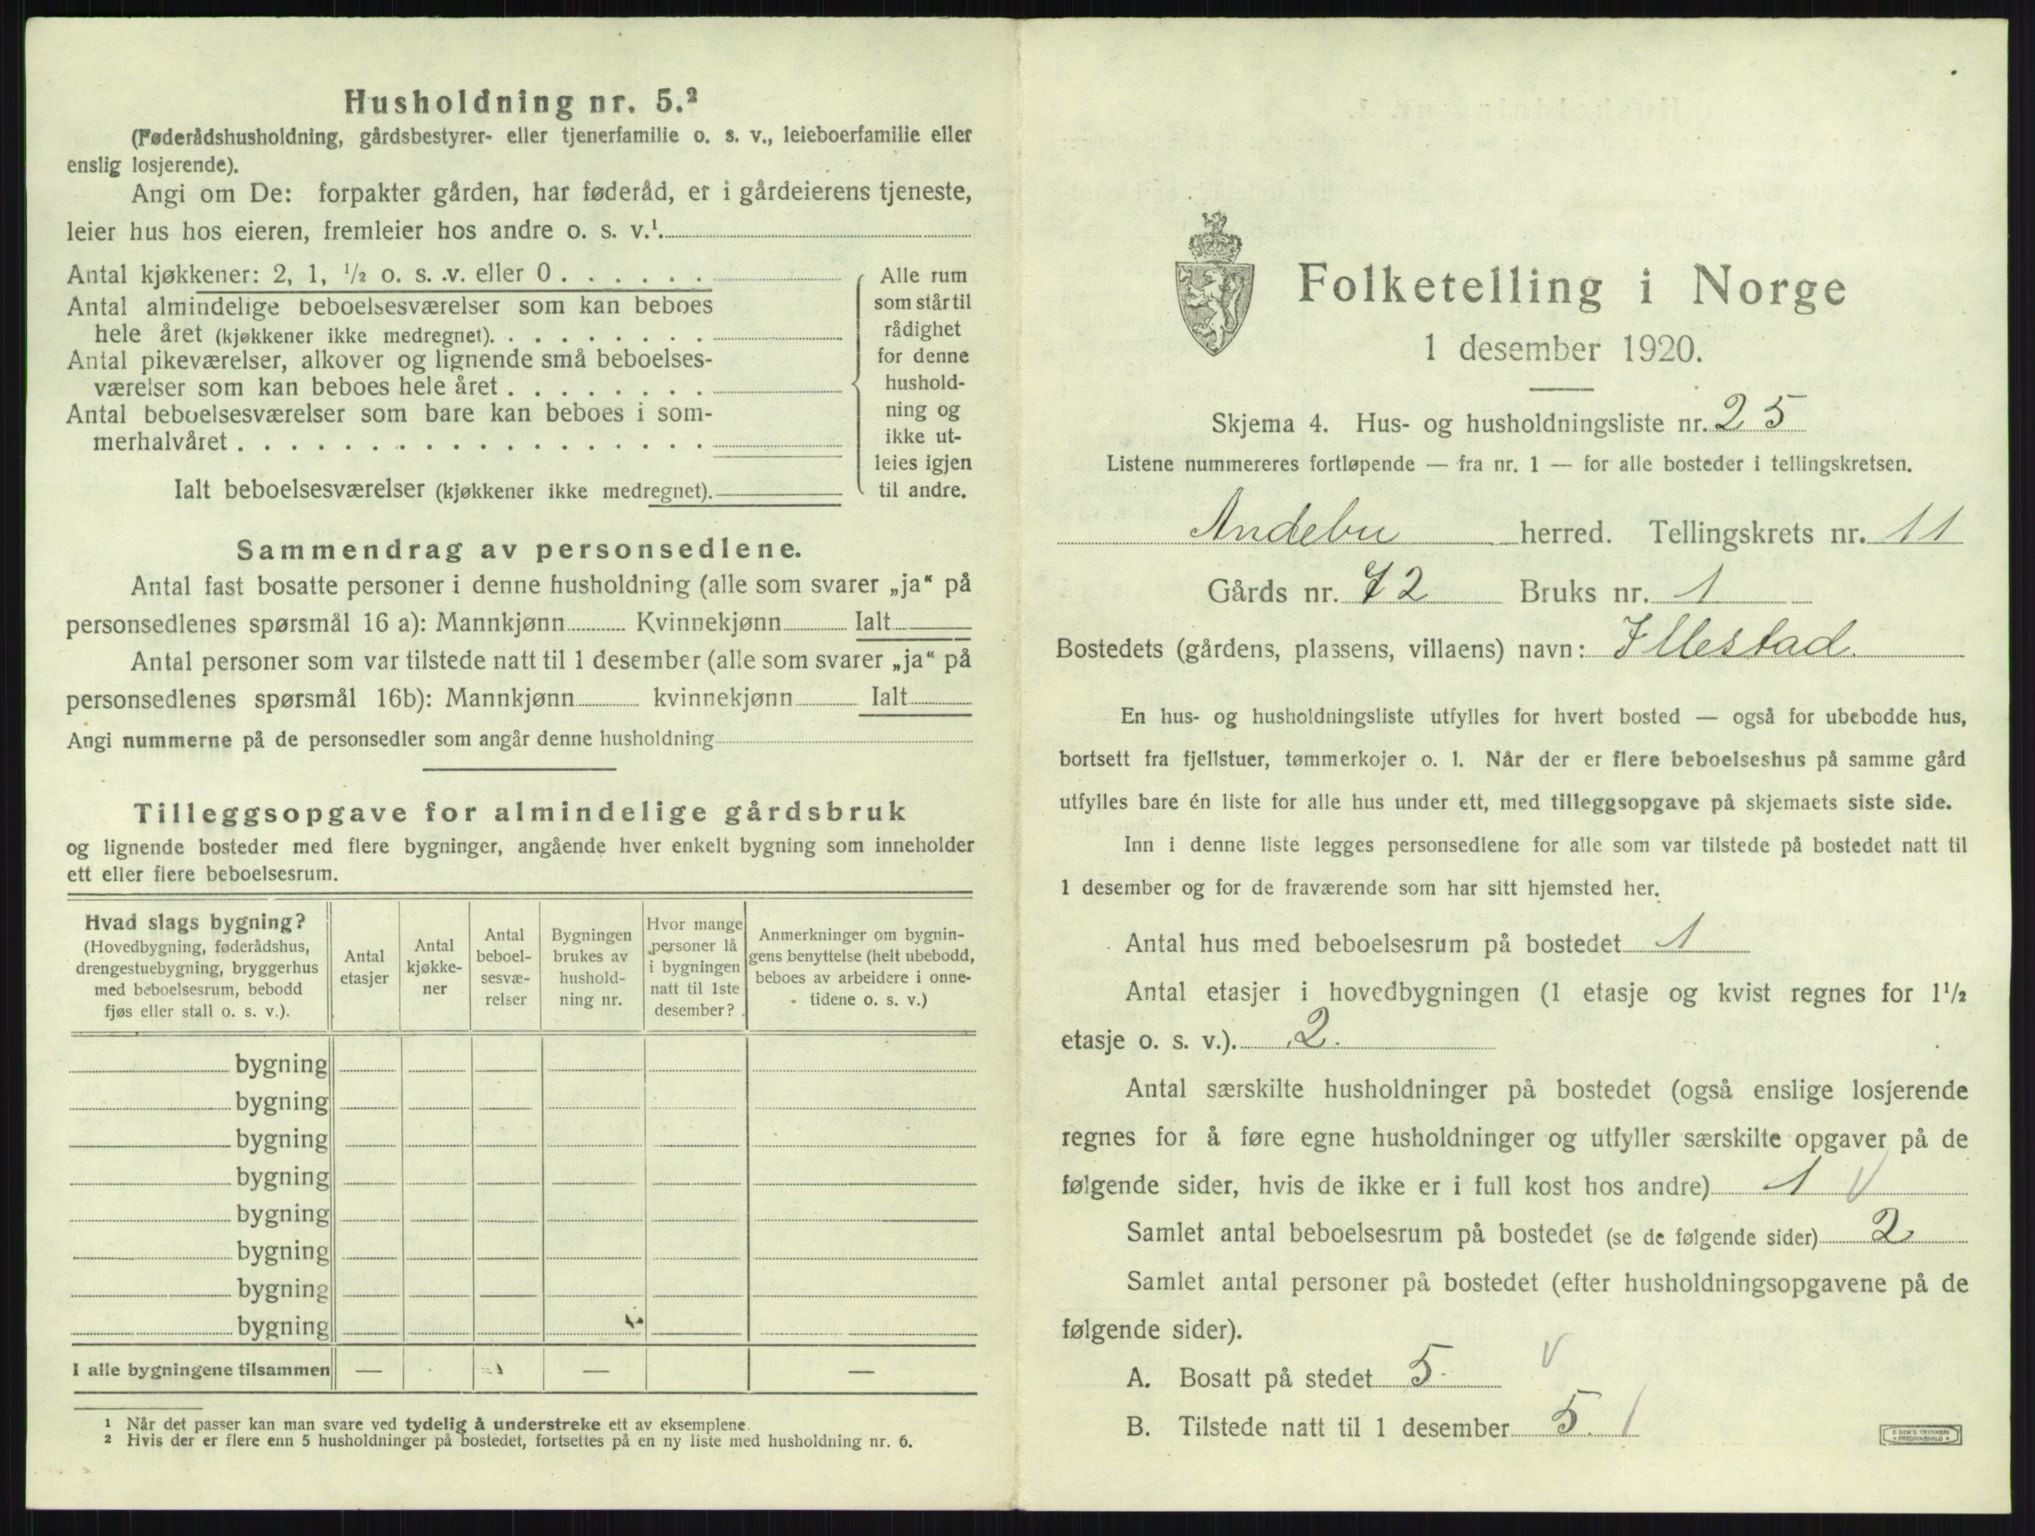 Husholdning nr. 5.²
(Føderådshusholdning, gårdsbestyrer- eller tjenerfamilie o. s. v., leieboerfamilie eller
enslig losjerende).
Angi om De: forpakter gården, har føderåd, er i gårdeierens tjeneste,
leier hus hos eieren, fremleier hos andre o. s. v.¹.
Antal kjøkkener: 2, 1, ½ o. s. v. eller 0 . . . . . .
Antal almindelige beboelsesværelser som kan beboes
hele året (kjøkkener ikke medregnet). . . . . . . . .
Antal pikeværelser, alkover og lignende små beboelses-
værelser som kan beboes hele året . . . . . . . .
Antal beboelsesværelser som bare kan beboes i som-
merhalvåret . . . . . . . . . . . . . . . . . .
Ialt beboelsesværelser (kjøkkener ikke medregnet).
Alle rum
som står til
rådighet
for denne
hushold-
ning og
ikke ut-
leies igjen
til andre.
Sammendrag av personsedlene.
Antal fast bosatte personer i denne husholdning (alle som svarer „ja“ på
personsedlenes spørsmål 16 a): Mannkjønn Kvinnekjønn Ialt
Antal personer som var tilstede natt til 1 desember (alle som svarer „ja“ på
personsedlenes spørsmål 16b): Mannkjønn kvinnekjønn Ialt
Angi nummerne på de personsedler som angår denne husholdning
Tilleggsopgave for almindelige gårdsbruk
og lignende bosteder med flere bygninger, angående hver enkelt bygning som inneholder
ett eller flere beboelsesrum.
Hvad slags bygning?
(Hovedbygning, føderådshus,
drengestuebygning, bryggerhus
med beboelsesrum, bebodd
fjøs eller stall o. s. v.).
Antal
etasjer
Antal
kjøkke-
ner
Antal
beboel-
sesvæ-
relser
Bygningen
brukes av
hushold-
ning nr.
Hvor mange
personer lå
i bygningen
natt til 1ste
desember?
Anmerkninger om bygnin-
gens benyttelse (helt ubebodd,
beboes av arbeidere i onne-
tidene o. s. v.)
bygning
bygning
bygning
bygning
bygning
bygning
bygning
bygning
I alle bygningene tilsammen — — —
¹ Når det passer kan man svare ved tydelig å understreke ett av eksemplene.
² Hvis der er flere enn 5 husholdninger på bostedet, fortsettes på en ny liste med husholdning nr. 6.
Folketelling i Norge
1 desember 1920.
Skjema 4. Hus- og husholdningsliste nr. 25
Listene nummereres fortløpende — fra nr. 1 — for alle bosteder i tellingskretsen.
Andebu herred. Tellingskrets nr. 11
Gårds nr. 72 Bruks nr. 1
Bostedets (gårdens, plassens, villaens) navn: Illestad.
En hus- og husholdningsliste utfylles for hvert bosted — også for ubebodde hus,
bortsett fra fjellstuer, tømmerkojer o. l. Når der er flere beboelseshus på samme gård
utfylles bare én liste for alle hus under ett, med tilleggsopgave på skjemaets siste side.
Inn i denne liste legges personsedlene for alle som var tilstede på bostedet natt til
1 desember og for de fraværende som har sitt hjemsted her.
Antal hus med beboelsesrum på bostedet 1
Antal etasjer i hovedbygningen (1 etasje og kvist regnes for 1½
etasje o. s. v.). 2.
Antal særskilte husholdninger på bostedet (også enslige losjerende
regnes for å føre egne husholdninger og utfyller særskilte opgaver på de
følgende sider, hvis de ikke er i full kost hos andre) 1 v
Samlet antal beboelsesrum på bostedet (se de følgende sider) 2
Samlet antal personer på bostedet (efter husholdningsopgavene på de
følgende sider).
A. Bosatt på stedet 5. v
B. Tilstede natt til 1 desember 5. /